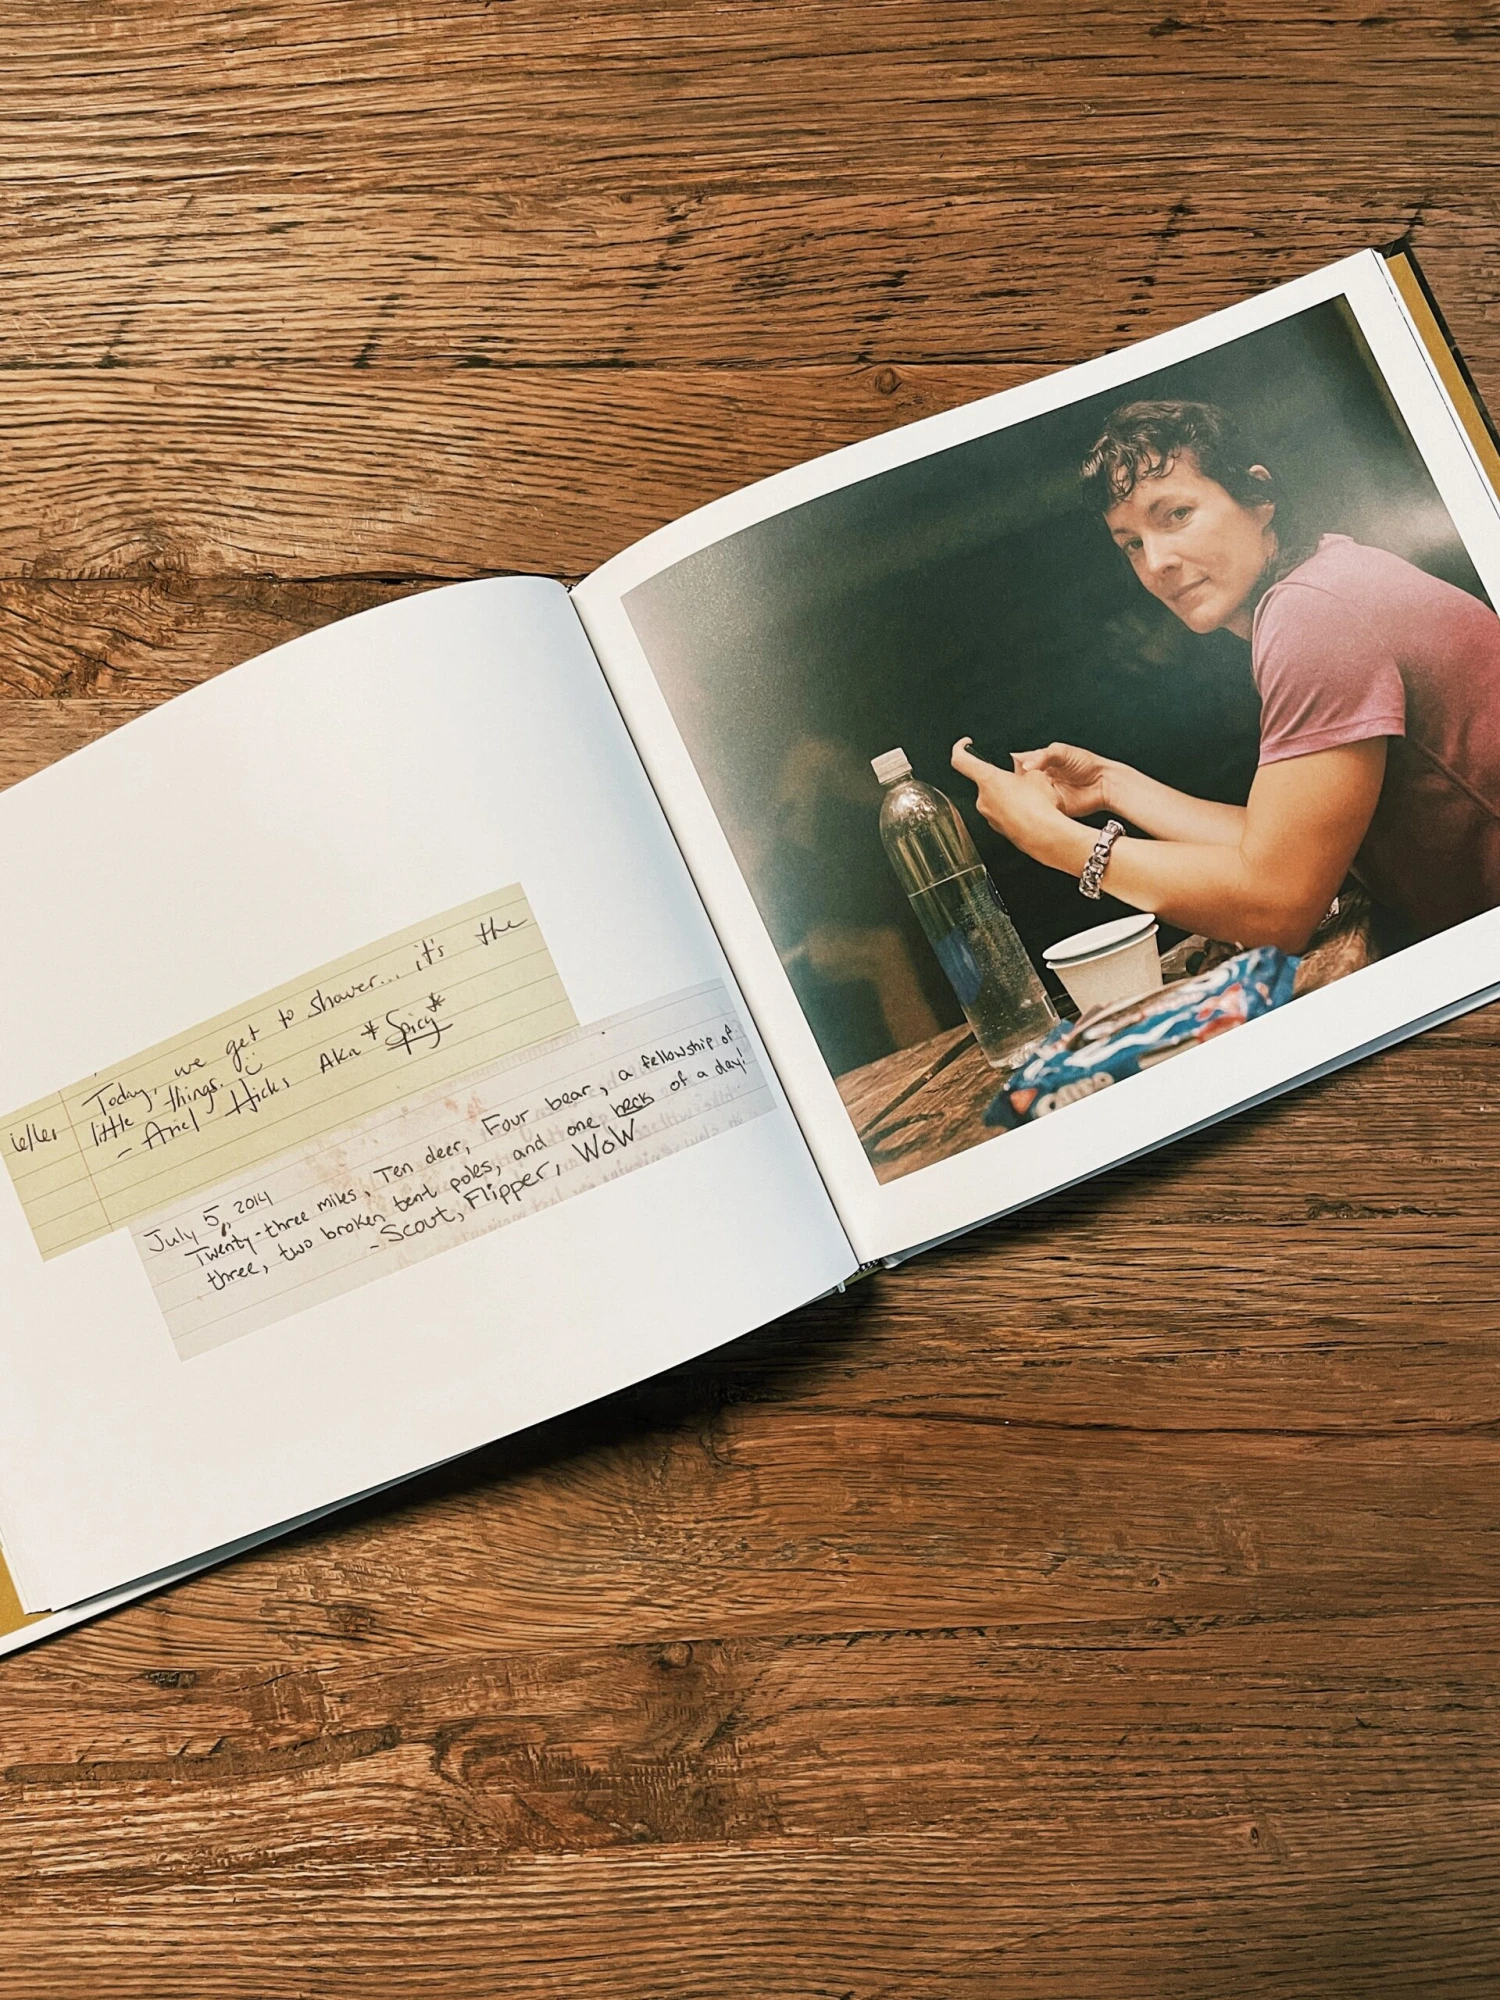 Today, we get to shower... it's the
little things. :)
- Ariel Hicks AKA *Spicy*
July 5, 2014
Twenty-three miles, Ten deer, Four bear, a fellowship of
three, two broken tent poles, and one heck of a day!
- Scout, Flipper, WoW